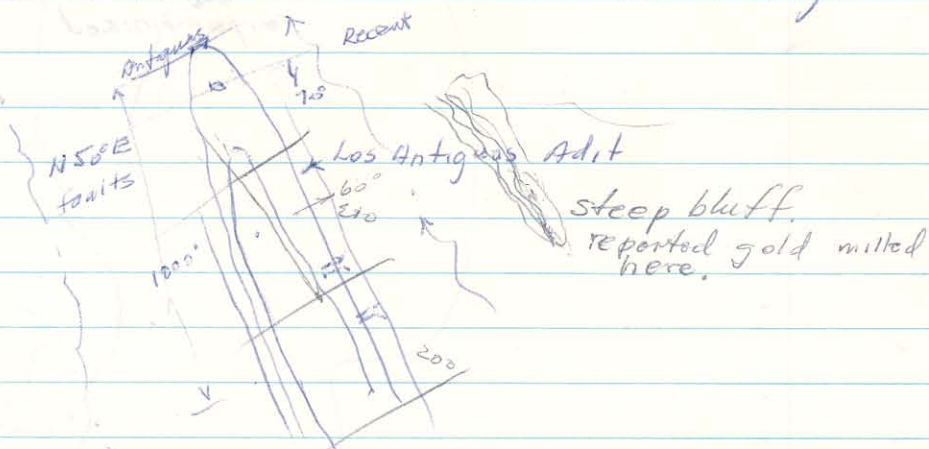 Antiguas
Recent
70°
N50°E
faults
Los Antiguas Adit
60°
steep bluff.
reported gold milled
here.
1000°
200